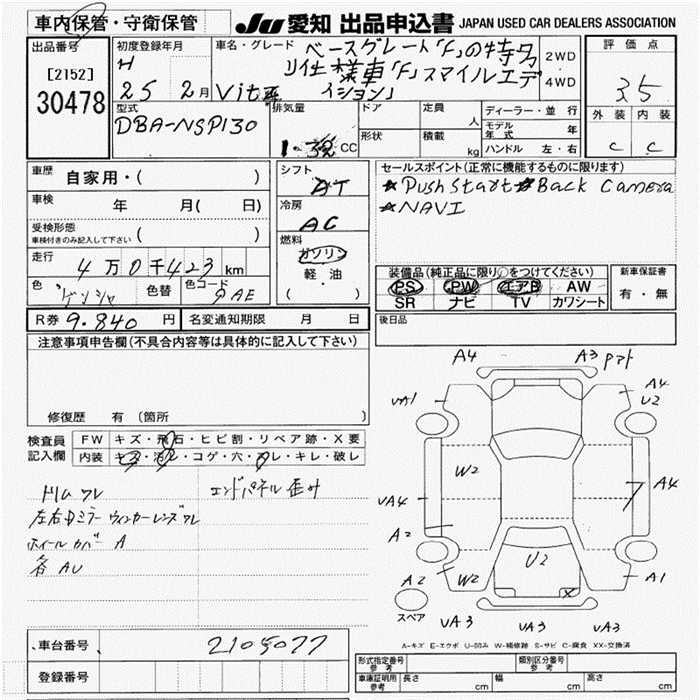 車内保管・守衛保管
JU 愛知 出品申込書 JAPAN USED CAR DEALERS ASSOCIATION
出品番号
[2152]
30478
初度登録年月
H
25 2月
車名・グレード
ベースグレード「F」の特別
仕様車「F」スマイルエデ
Vitz ィション」
2WD
4WD
評価点
3.5
外装 内装
C C
型式
DBA-NSP130
排気量
CC
ドア
形状
定員 人
積載 kg
ディーラー・並行
モデル年式 年
ハンドル 左・右
車歴 自家用・( )
車検 年 月( 日)
受検形態
車検付きのみ記入して下さい ( )
走行 4万0千423 km
色 色替 色コード
R券 9.840 円 名変通知期限 月 日
シフト
AT
冷房
AC
燃料
ガソリン
軽・油
( )
セールスポイント(正常に機能するものに限ります)
★Push Start ★Back Camera
★NAVI
装備品(純正品に限り○をつけてください)
PS PW エアB AW
SR ナビ TV カワシート
新車保証書
有・無
後日品
注意事項申告欄(不具合内容等は具体的に記入して下さい)
修復歴 有(箇所 )
検査員記入欄
FW キズ・飛石・ヒビ割・リペア跡・X要
内装 キズ・汚レ・コゲ・穴・スレ・キレ・破レ
トリム ワレ
左右Dミラー ウィンカーレンズワレ
ホイールカバー A
各 AU
エンドパネル歪み
A4
A3 Pマト
UA1
A4
U2
W2
UA4
A4
A2
A2
W2
U2
X
A1
スペア
UA3
UA3
UA3
A-キズ E-エクボ U-凹み W-補修跡 S-サビ C-腐食 XX-交換済
車台番号 2105077
登録番号
形式指定番号 参考
類別区分番号 参考
車庫証明用 参考 長さ cm 幅 cm 高さ cm